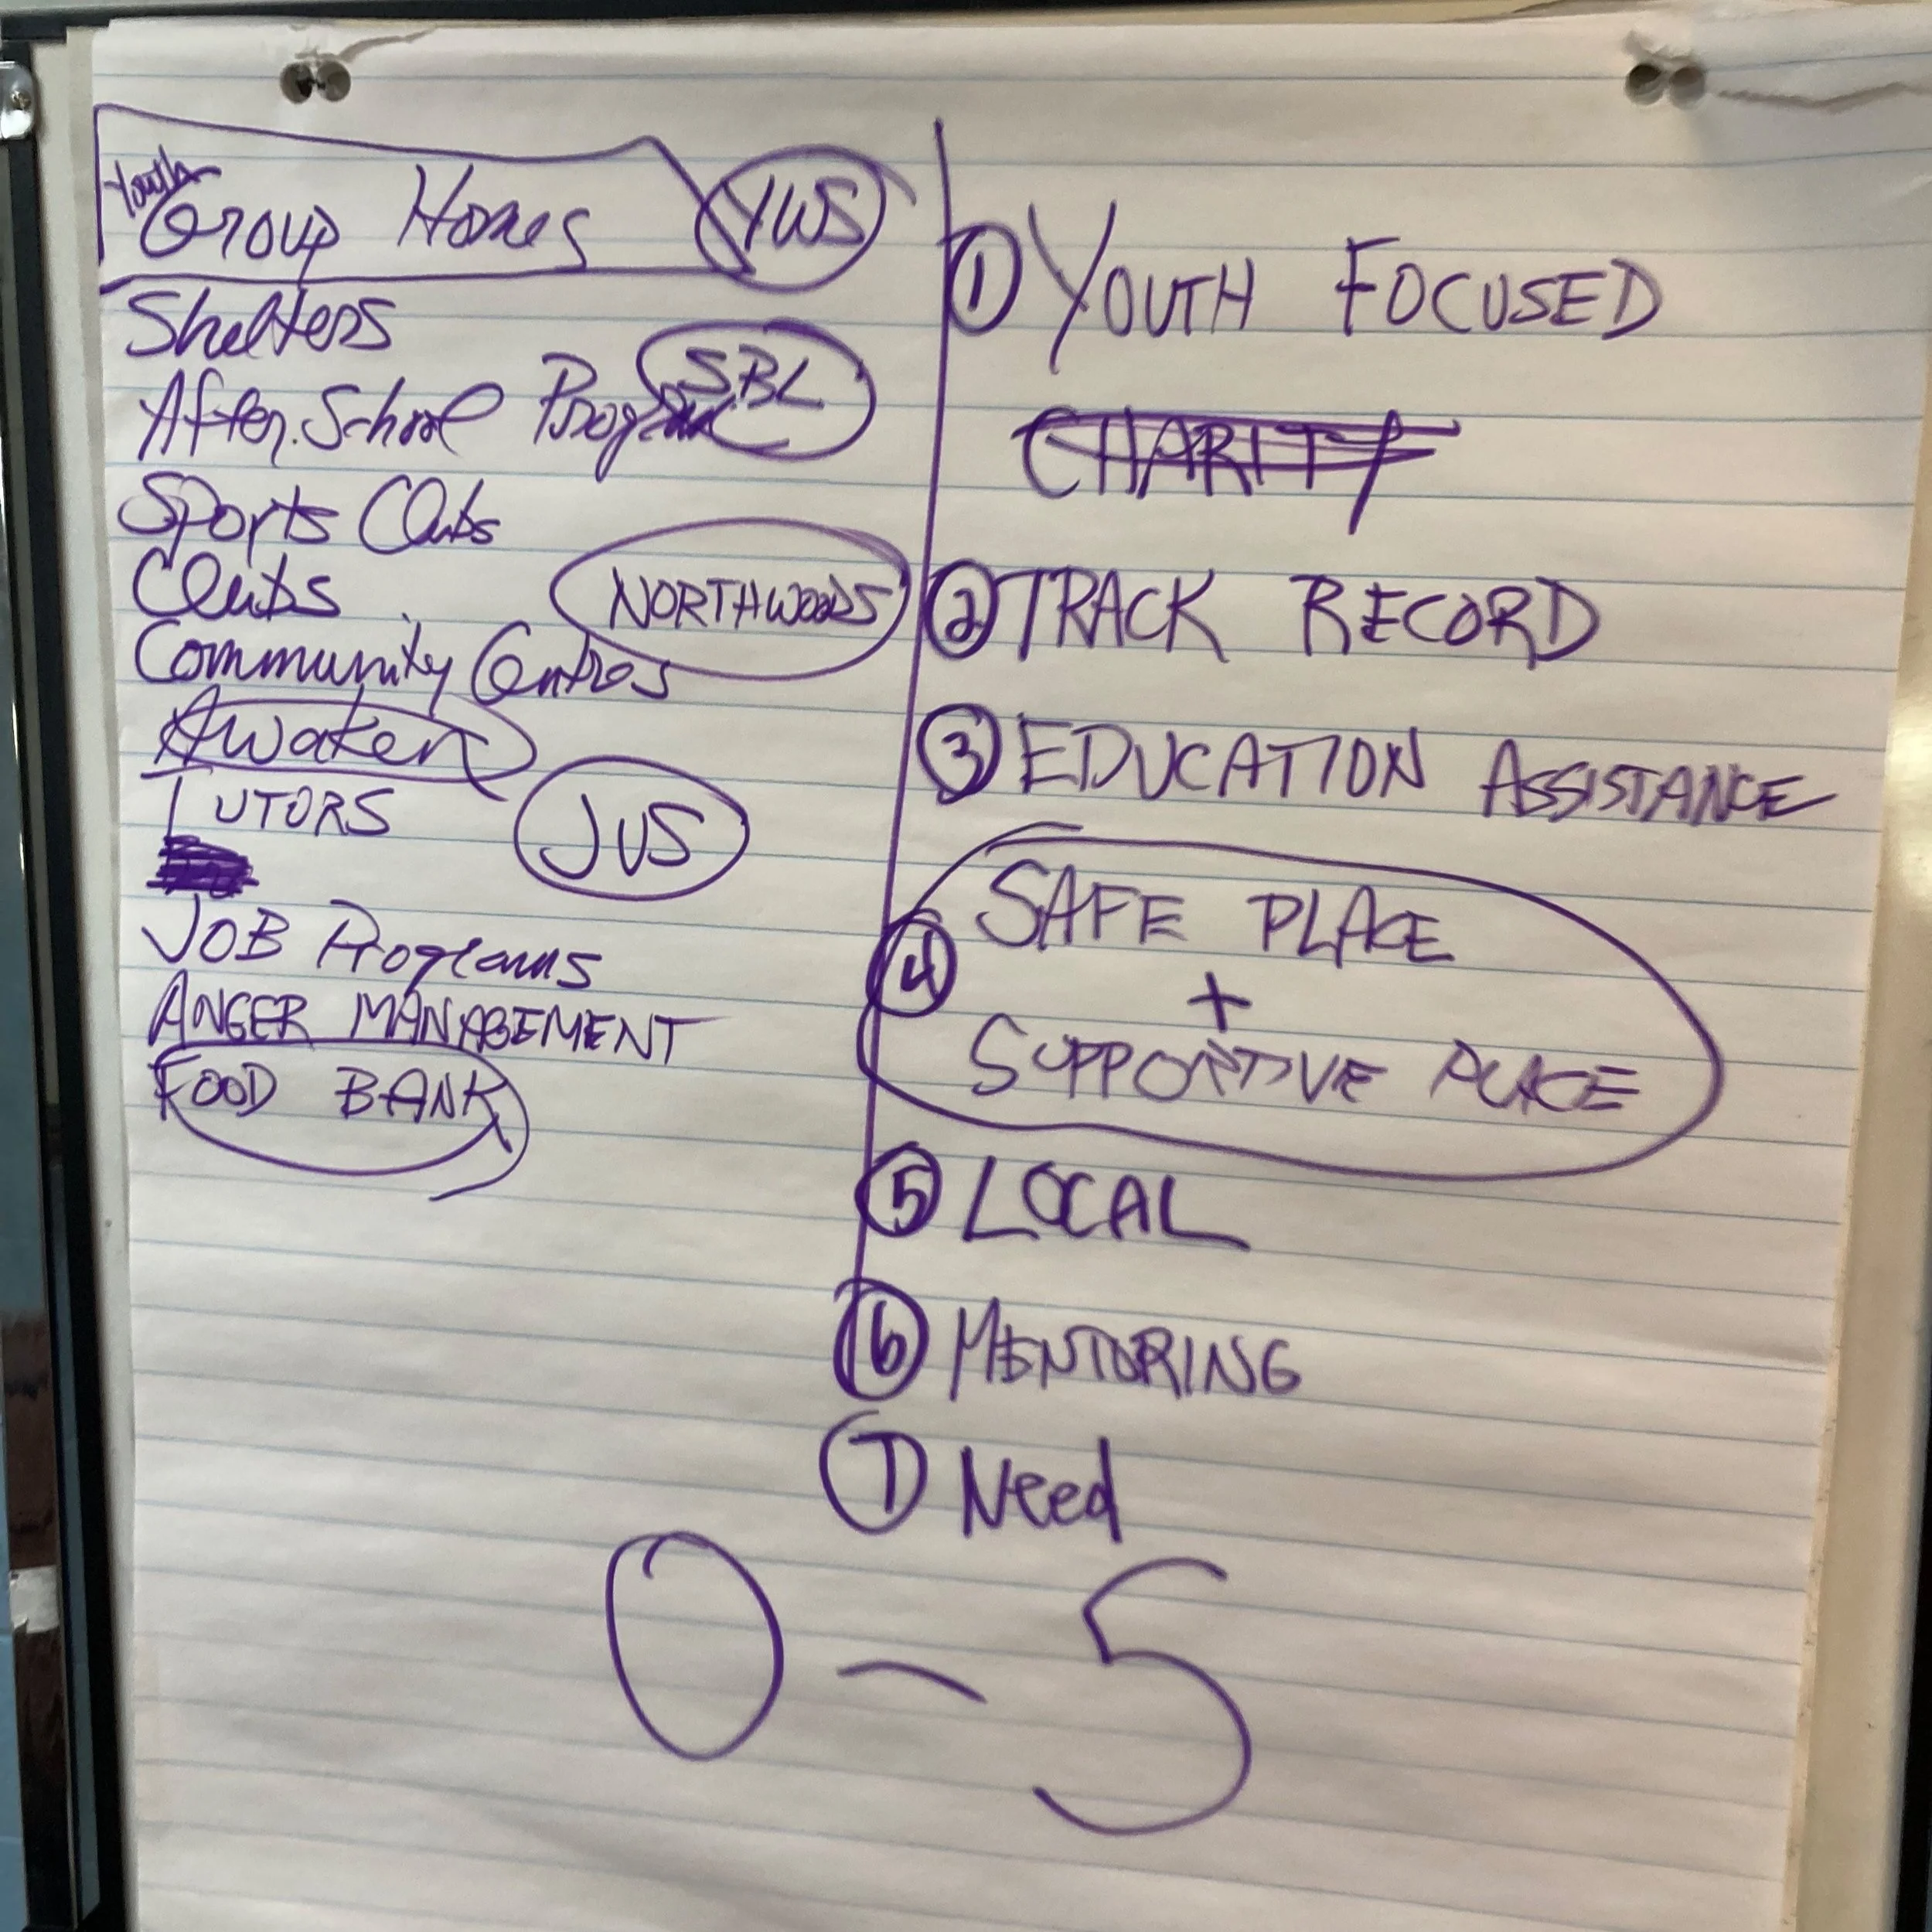 Youth
Group Homes YWS
Shelters
SBL
After School Program
Sports Clubs
Clubs
NORTHWOODS
Community Centres
Awaken
TUTORS
JVS
JOB Programs
ANGER MANAGEMENT
FOOD BANK
1 YOUTH FOCUSED
CHARITY
2 TRACK RECORD
3 EDUCATION ASSISTANCE
4 SAFE PLACE
+
SUPPORTIVE PLACE
5 LOCAL
6 MENTORING
7 Need
0 - 5